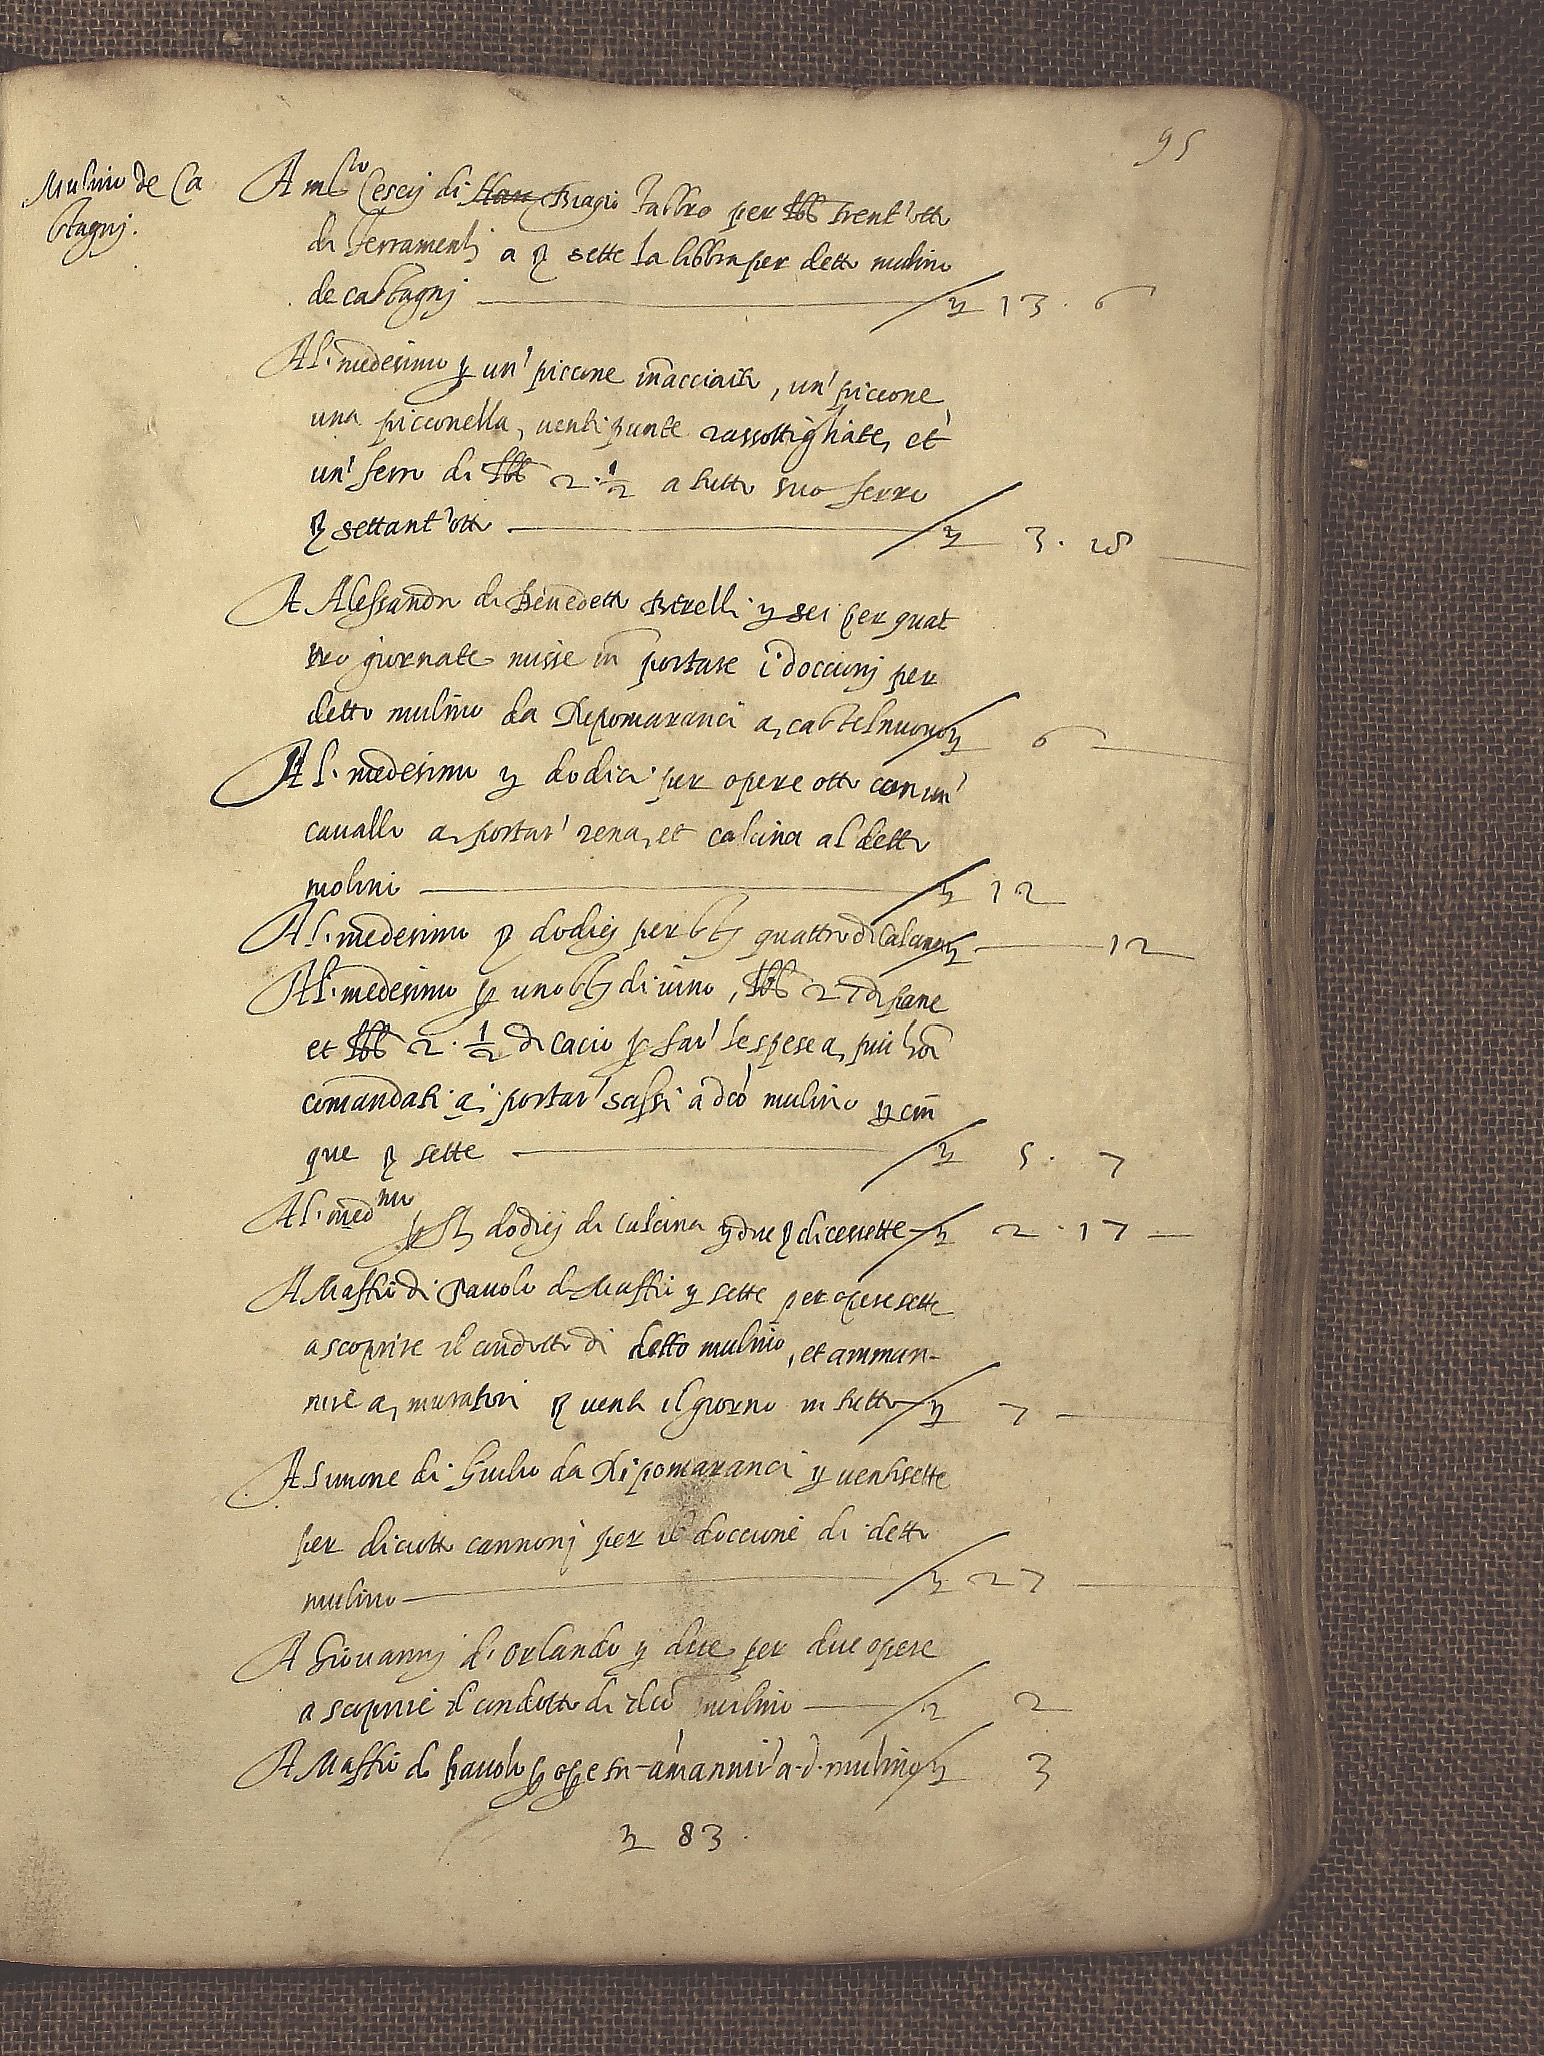 95
Mulino de Ca
stagnj.
A m.ro Cescij di Biagio fabbro per lbb trent'otto
di ferramenti a β sette la libbra per detto mulino
de castagnj ₤ 13. 6
Al. medesimo p un' piccone inacciaito, un' piccone
una picconella, venti punte rassottigliate, et
un' ferro di lbb 2. 1/2 a tutto suo ferro
β settant'otto ₤ 3. 18
A Alessandro di Benedetto Birelli ₤ sei per quat
tro giornate misse in portare i doccionj per
detto mulino da Ripomaranci a, castelnuovo ₤ 6
Al. medesimo ₤ dodici per opere otto con un'
cavallo a, portar' rena, et calcina al detto
molino ₤ 12
Al. medesimo β dodicj per stj quattro di calcina ₤ 12
Al. medesimo p uno stj di vino, lbb 27 di pane
et lbb 2. 1/2 di cacio p far' le spese a, più hoi
comandati a portar' sassi a dco mulino ₤ cin
que β sette ₤ 5. 7
Al. med.mo p stj dodicj di calcina ₤ due β dicessette ₤ 2. 17
A Maffio di Pavolo di Maffio ₤ sette per opere sette
a scoprire il condotto di detto mulino, et amman-
nire a, muratori β venti il giorno in tutto ₤ 7
A Simone di Giulio da Ripomaranci ₤ ventisette
per diciotto cannonj per il doccione di detto
mulino ₤ 27
A Giovannj d'Orlando ₤ due per due opere
a scoprire il condotto di dco mulino ₤ 2
A Maffio di Pavolo p ope tre amannir' a. d. mulino ₤ 3
₤ 83.